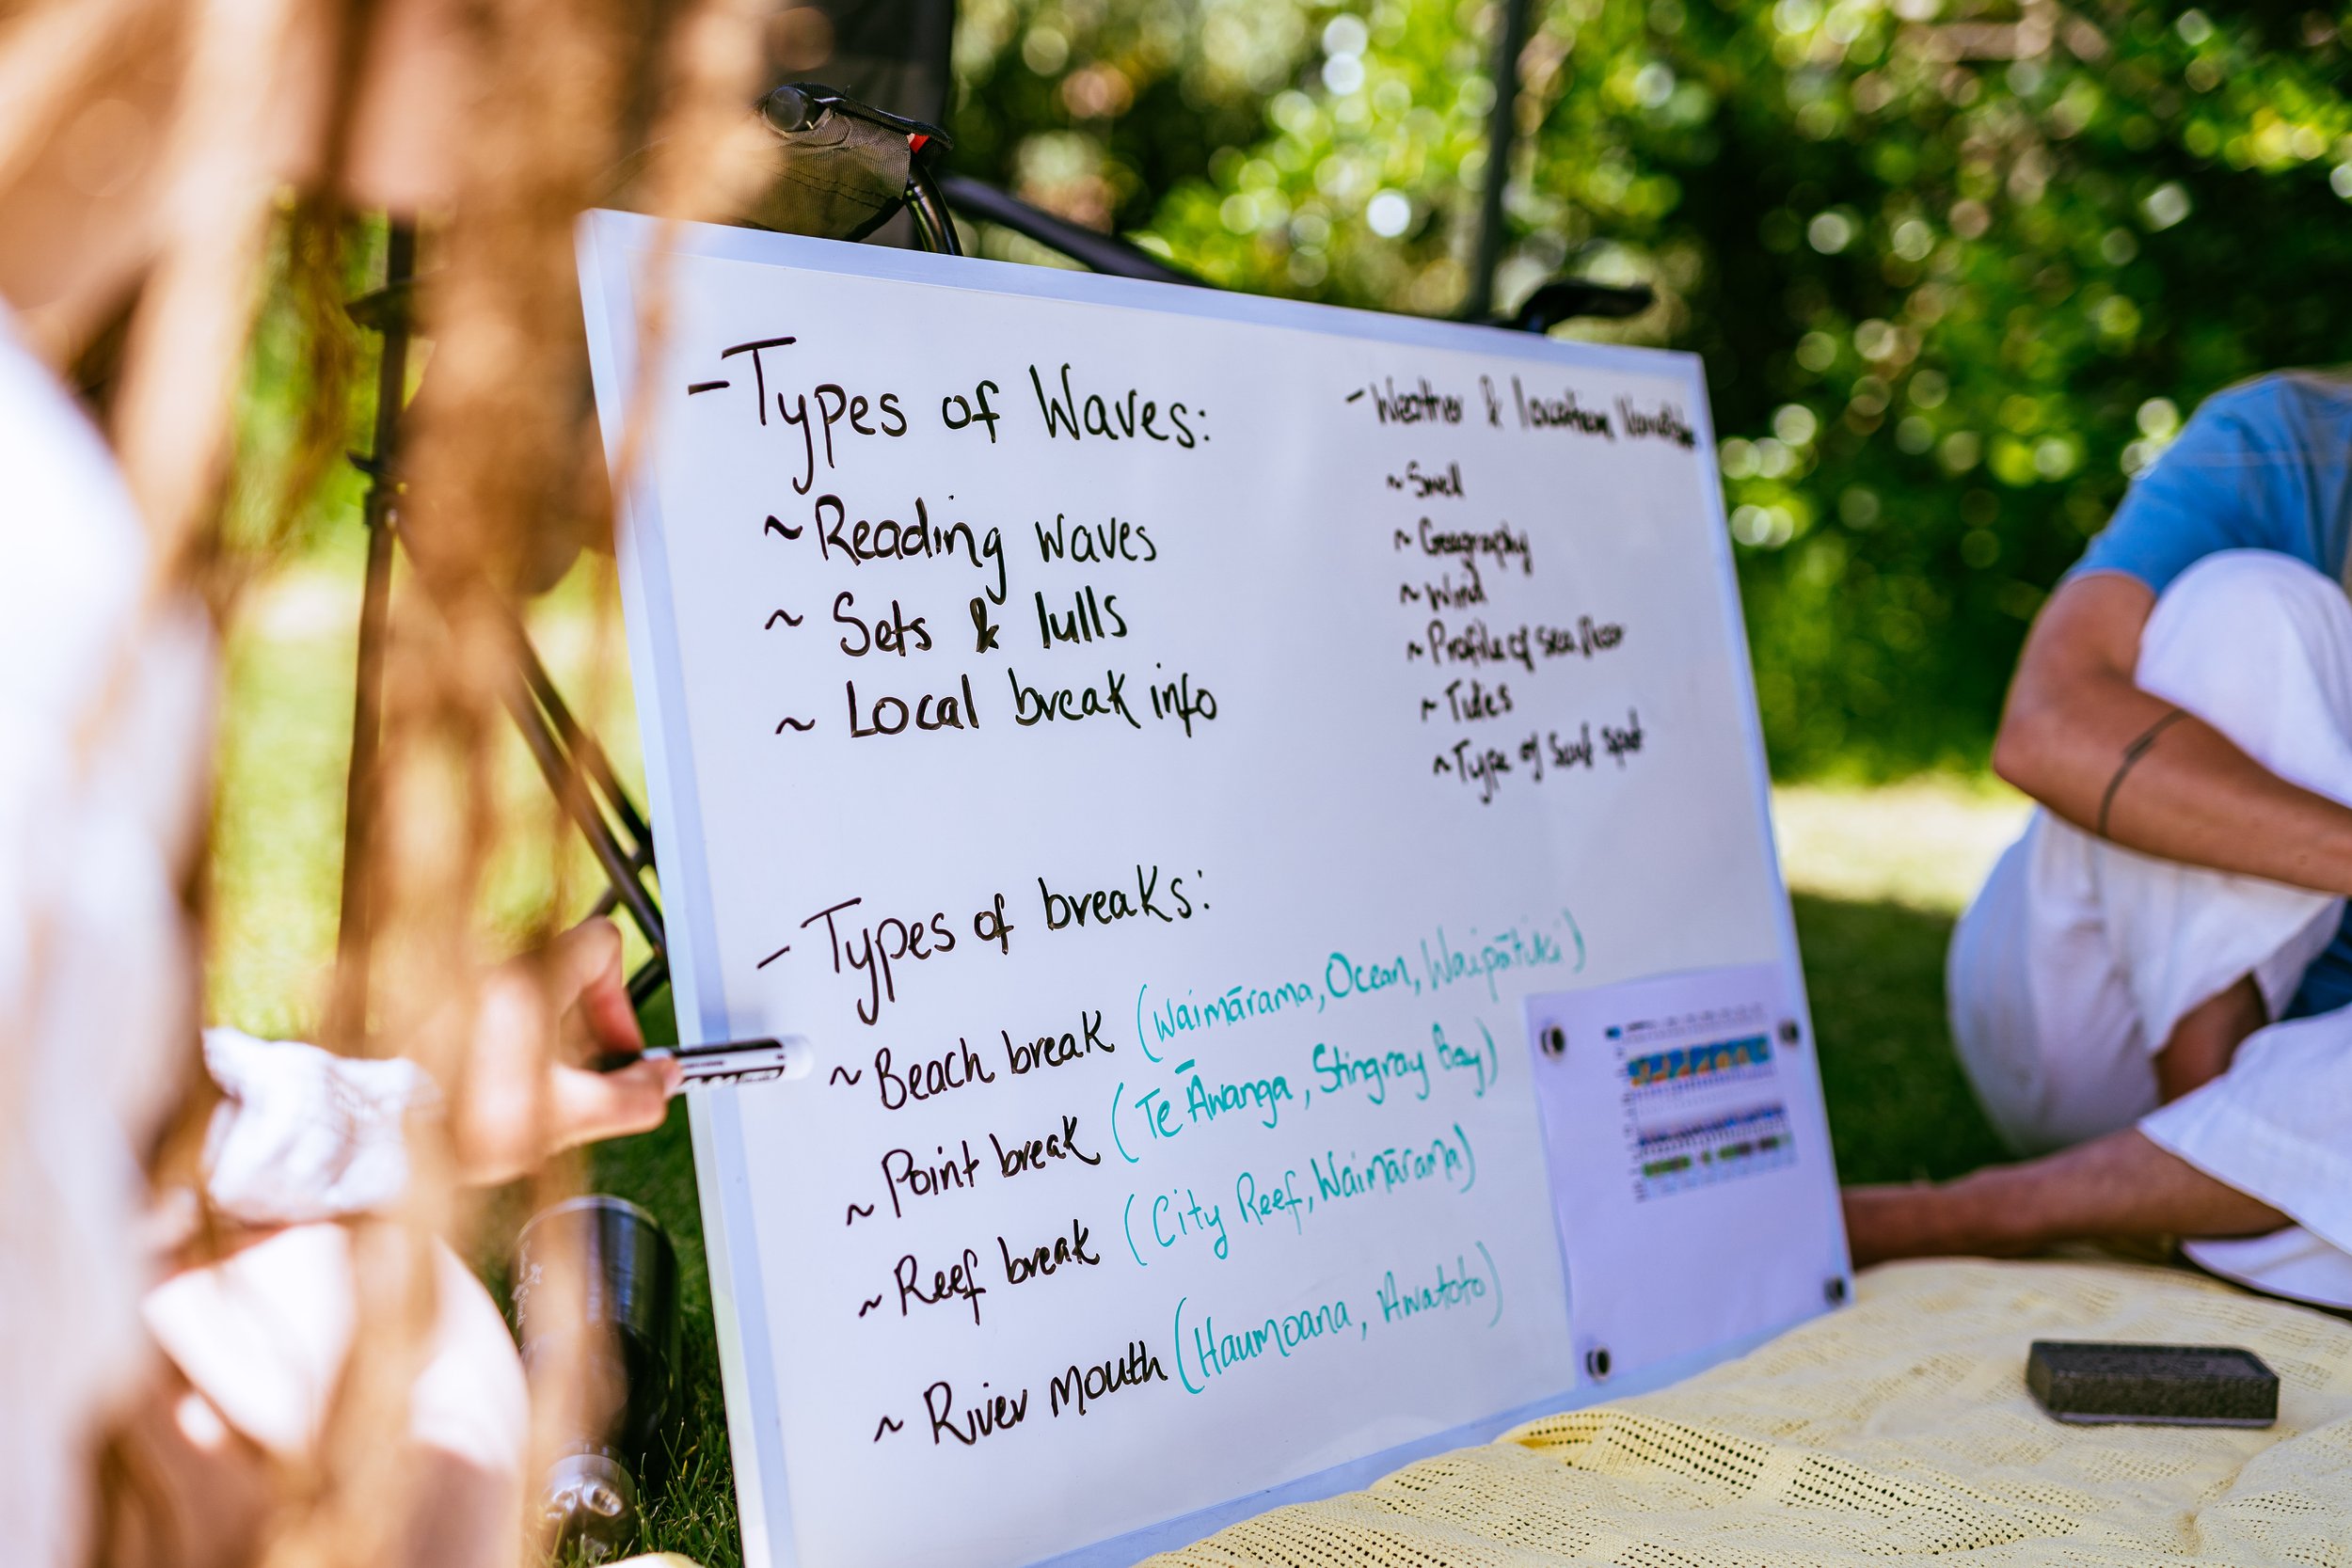 - Types of Waves:
~ Reading waves
~ Sets & lulls
~ Local break info
- Weather & location Variables
~ Swell
~ Geography
~ Wind
~ Profile of sea floor
~ Tides
~ Type of Surf spot
- Types of breaks:
~ Beach break (Waimārama, Ocean, Waipātiki)
~ Point break (Te Āwanga, Stingray Bay)
~ Reef break (City Reef, Waimārama)
~ River Mouth (Haumoana, Awatoto)